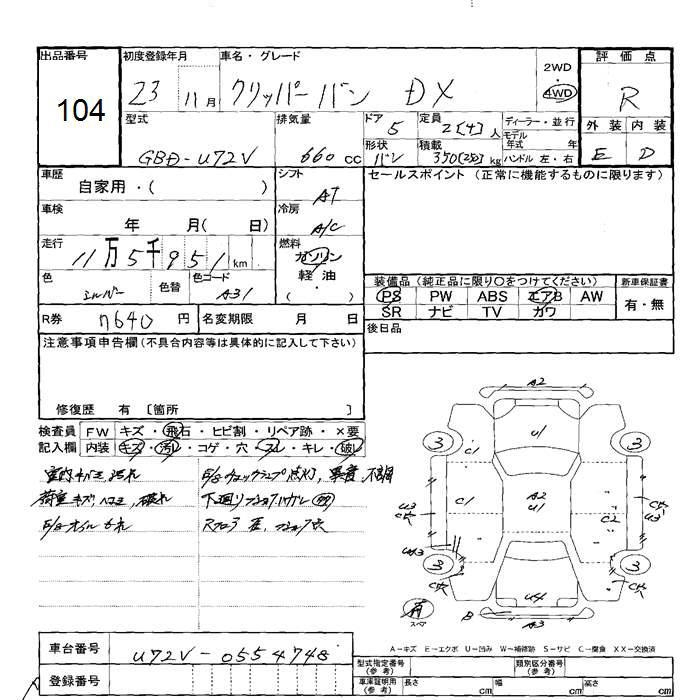 出品番号 初度登録年月 車名・グレード 2WD 評価点
104 23 11月 クリッパーバン DX 4WD R
型式 排気量 ドア 5 定員 2[4]人 ディーラー・並行 外装 内装
GBD-U72V 660 cc 形状 バン 積載 350[250]kg モデル年式 年 ハンドル 左・右 E D
車歴 自家用・( ) シフト AT セールスポイント(正常に機能するものに限ります)
車検 年 月( 日) 冷房 A/C
走行 11万5千951km 燃料 ガソリン 軽油 ・( )
色 シルバー 色替 色コード A31
装備品(純正品に限り○をつけてください) 新車保証書
PS PW ABS エアB AW 有・無
SR ナビ TV カワ
R券 7640円 名変期限 月 日 後日品
注意事項申告欄(不具合内容等は具体的に記入して下さい)
修復歴 有 [箇所 ]
検査員 FW キズ・飛石・ヒビ割・リペア跡・×要
記入欄 内装 キズ・汚れ・コゲ・穴・スレ・キレ・破レ
室内キバミ、汚れ
荷室キズ、ヘコミ、破れ
E/gオイルもれ
E/gチェックランプ点灯、異音、不調
下廻り
Rフロア
A2
U1
3 3
C1
C1 A2 U1 C2
U3 U3
3 3
U4
有 スペア B A3
A-キズ E-エクボ U-凹み W-補修跡 S-サビ C-腐食 XX-交換済
車台番号 U72V-0554748
登録番号
型式指定番号(参考) 類別区分番号(参考)
車庫証明用(参考) 長さ cm 幅 cm 高さ cm